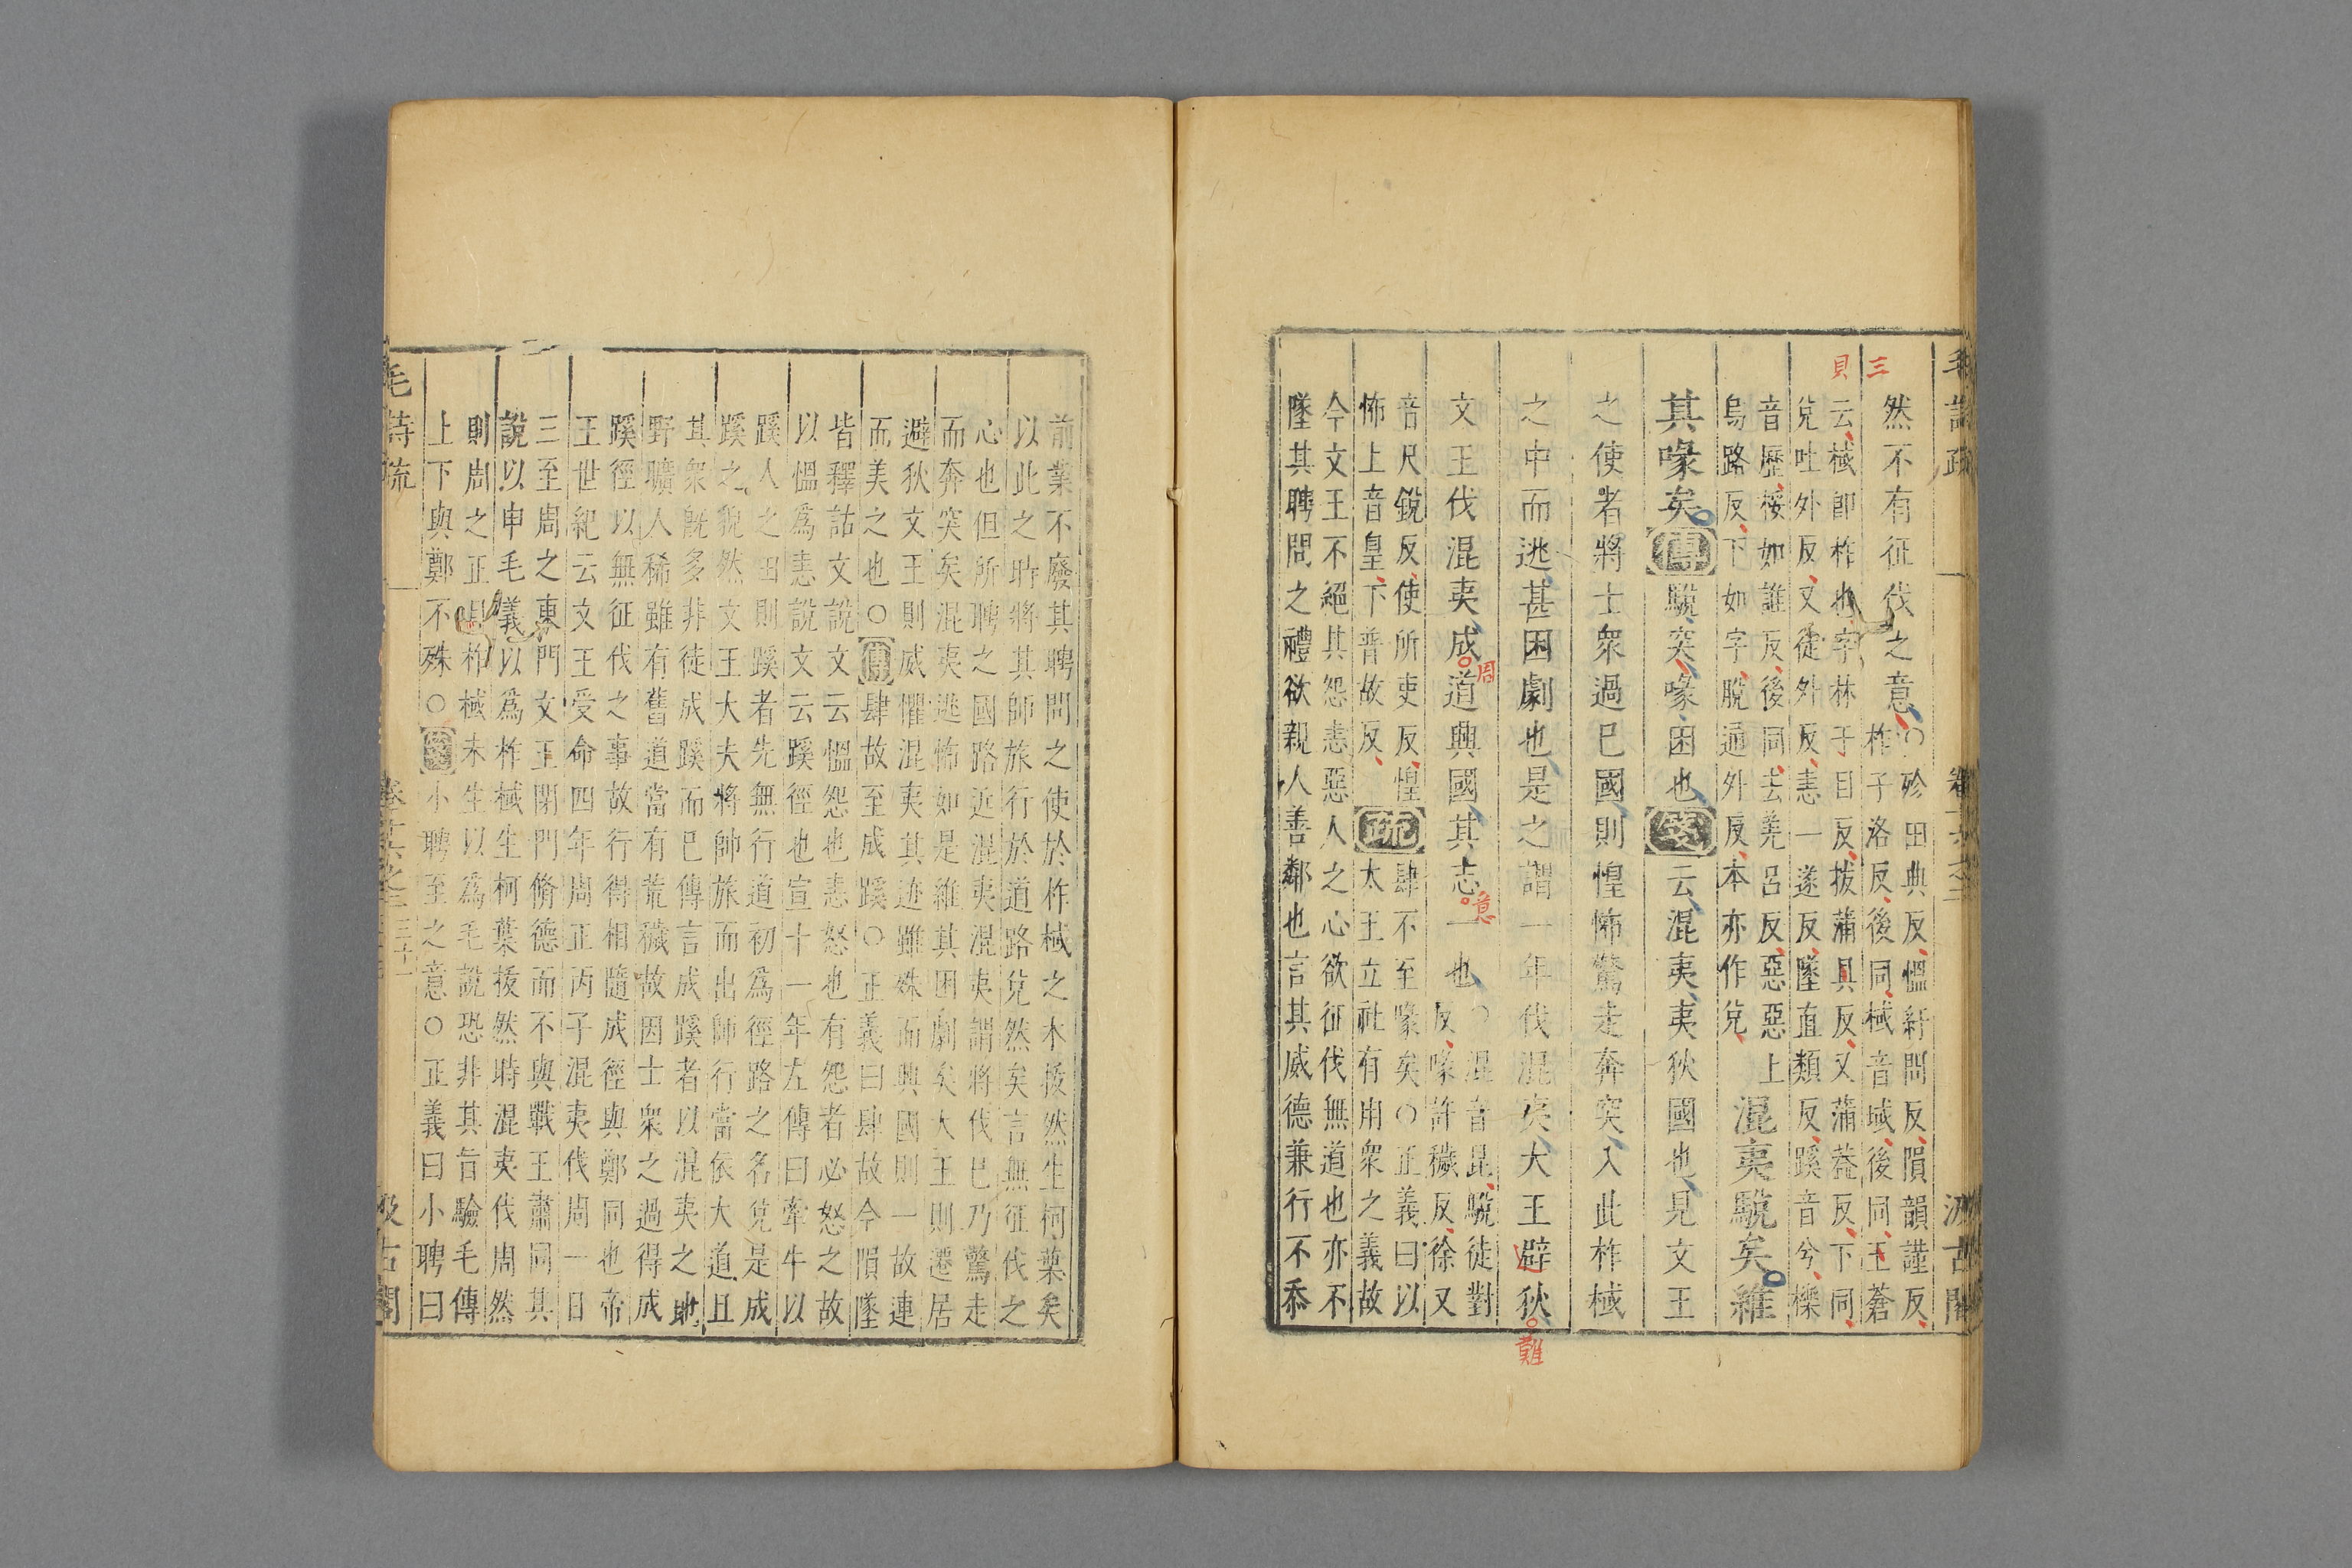 毛詩疏 卷十六之二 汲古閣
三
貝
然不有征伐之意○殄田典反慍紆問反隕韻謹反
柞子洛反後同棫音域後同王蒼
云棫即柞也字林子目反拔蒲具反又蒲葢反下同
兌吐外反又徒外反恚一遂反墜直類反蹊音兮櫟
音歷桵如誰反後同去羌呂反惡惡上
烏路反下如字脫通外反本亦作兌
混夷駾矣維
其喙矣傳駾突喙困也箋云混夷夷狄國也見文王
之使者將士衆過巳國則惶怖驚走奔突入此柞棫
之中而逃甚困劇也是之謂一年伐混夷大王辟狄
難
文王伐混夷成道興國其志一也○混音昆駾徒對
反喙許穢反徐又
周
意
音尺銳反使所吏反惶
怖上音皇下普故反
疏肆不至喙矣○正義曰以
太王立社有用衆之義故
今文王不絕其怨恚惡人之心欲征伐無道也亦不
墜其聘問之禮欲親人善鄰也言其威德兼行不忝
前業不廢其聘問之使於柞棫之木拔然生柯葉矣
以此之時將其師旅行於道路兌然矣言無征伐之
心也但所聘之國路近混夷混夷謂將伐巳乃驚走
而奔突矣混夷逃怖如是維其困劇矣大王則遷居
避狄文王則威懼混夷其迹雖殊而興國則一故連
而美之也○傳肆故至成蹊○正義曰肆故今隕墜
皆釋詁文說文云慍怨也恚怒也有怨者必怒之故
以慍爲恚說文云蹊徑也宣十一年左傳曰牽牛以
蹊人之田則蹊者先無行道初爲徑路之名兌是成
蹊之貌然文王大夫將帥旅而出師行當依大道且
其衆旣多非徒成蹊而巳傳言成蹊者以混夷之地
野曠人稀雖有舊道當有荒穢故因士衆之過得成
蹊徑以無征伐之事故行得相隨成徑與鄭同也帝
王世紀云文王受命四年周正丙子混夷伐周一日
三至周之東門文王閉門脩德而不與戰王肅同其
說以申毛義以爲柞棫生柯葉拔然時混夷伐周然
則周之正月柞棫未生以爲毛說恐非其旨驗毛傳
上下與鄭不殊○箋小聘至之意○正義曰小聘曰
毛詩疏 卷十六之二 三十一 汲古閣